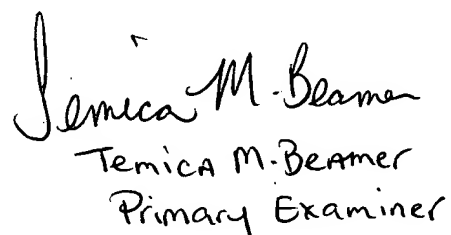 Temica M. Beamer
TemicA M. BeAmer
Primary Examiner